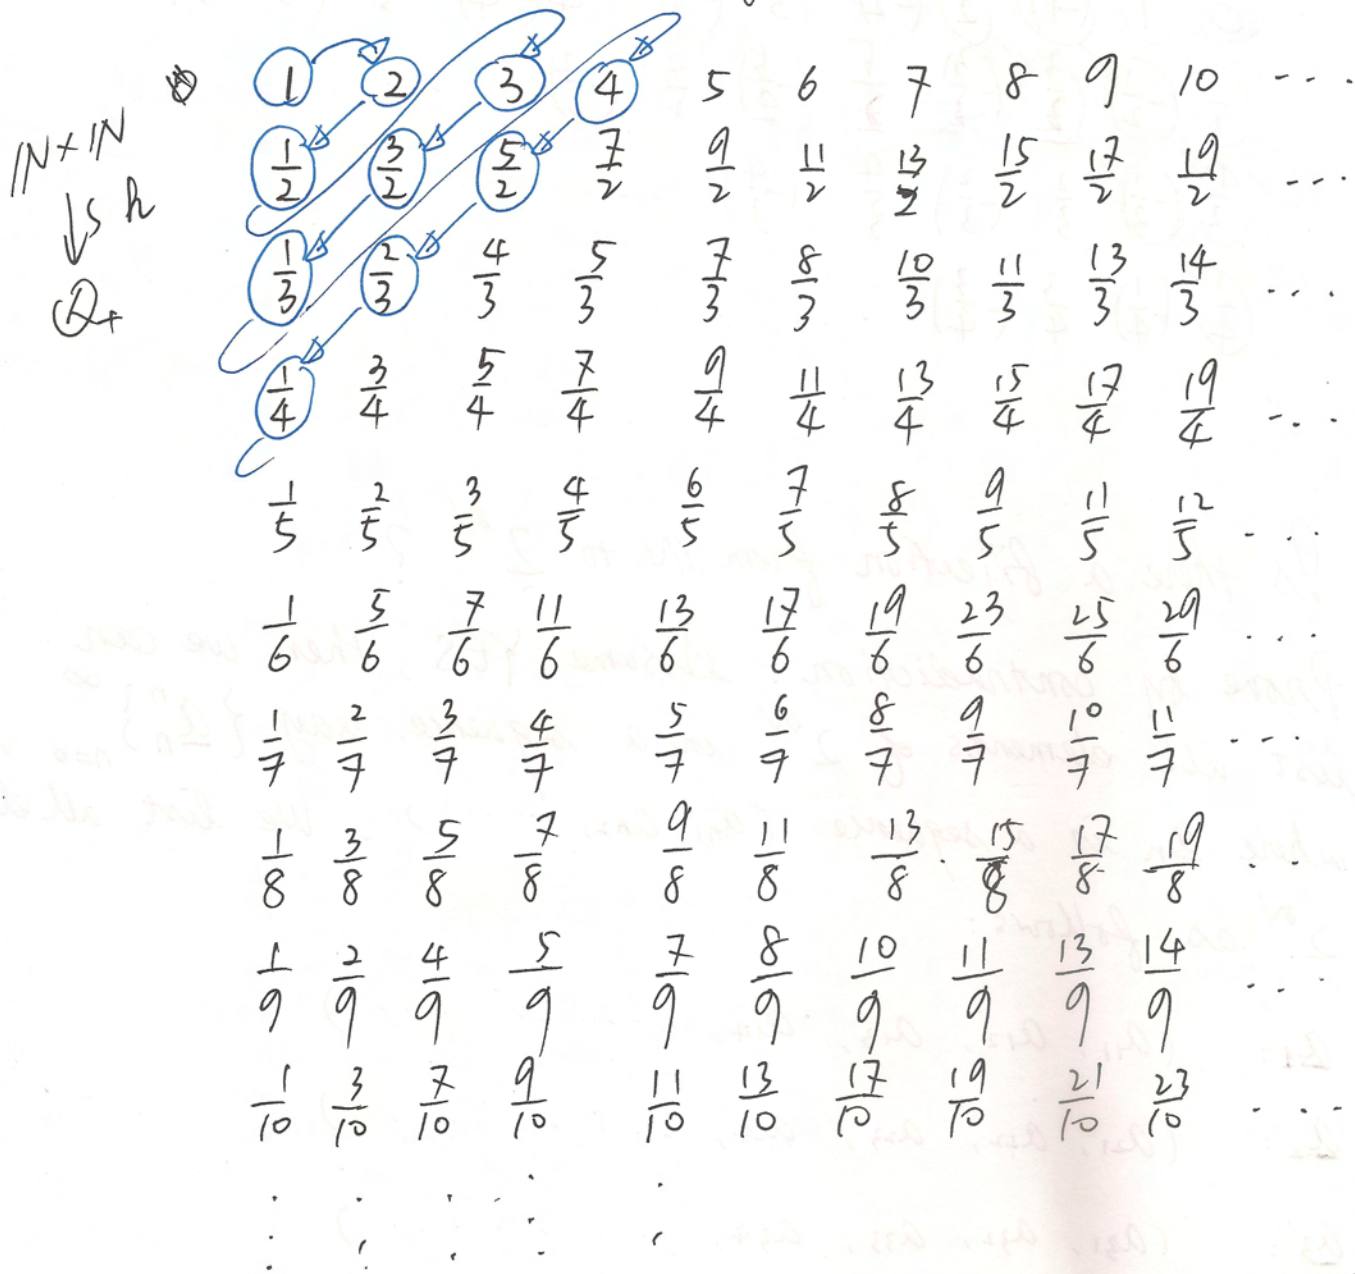 1 2 3 4 5 6 7 8 9 10 ...
ℕ×ℕ
1/2 3/2 5/2 7/2 9/2 11/2 13/2 15/2 17/2 19/2 ...
↓s h
1/3 2/3 4/3 5/3 7/3 8/3 10/3 11/3 13/3 14/3 ...
ℚ+
1/4 3/4 5/4 7/4 9/4 11/4 13/4 15/4 17/4 19/4 ...
1/5 2/5 3/5 4/5 6/5 7/5 8/5 9/5 11/5 12/5 ...
1/6 5/6 7/6 11/6 13/6 17/6 19/6 23/6 25/6 29/6 ...
1/7 2/7 3/7 4/7 5/7 6/7 8/7 9/7 10/7 11/7 ...
1/8 3/8 5/8 7/8 9/8 11/8 13/8 15/8 17/8 19/8 ...
1/9 2/9 4/9 5/9 7/9 8/9 10/9 11/9 13/9 14/9 ...
1/10 3/10 7/10 9/10 11/10 13/10 17/10 19/10 21/10 23/10 ...